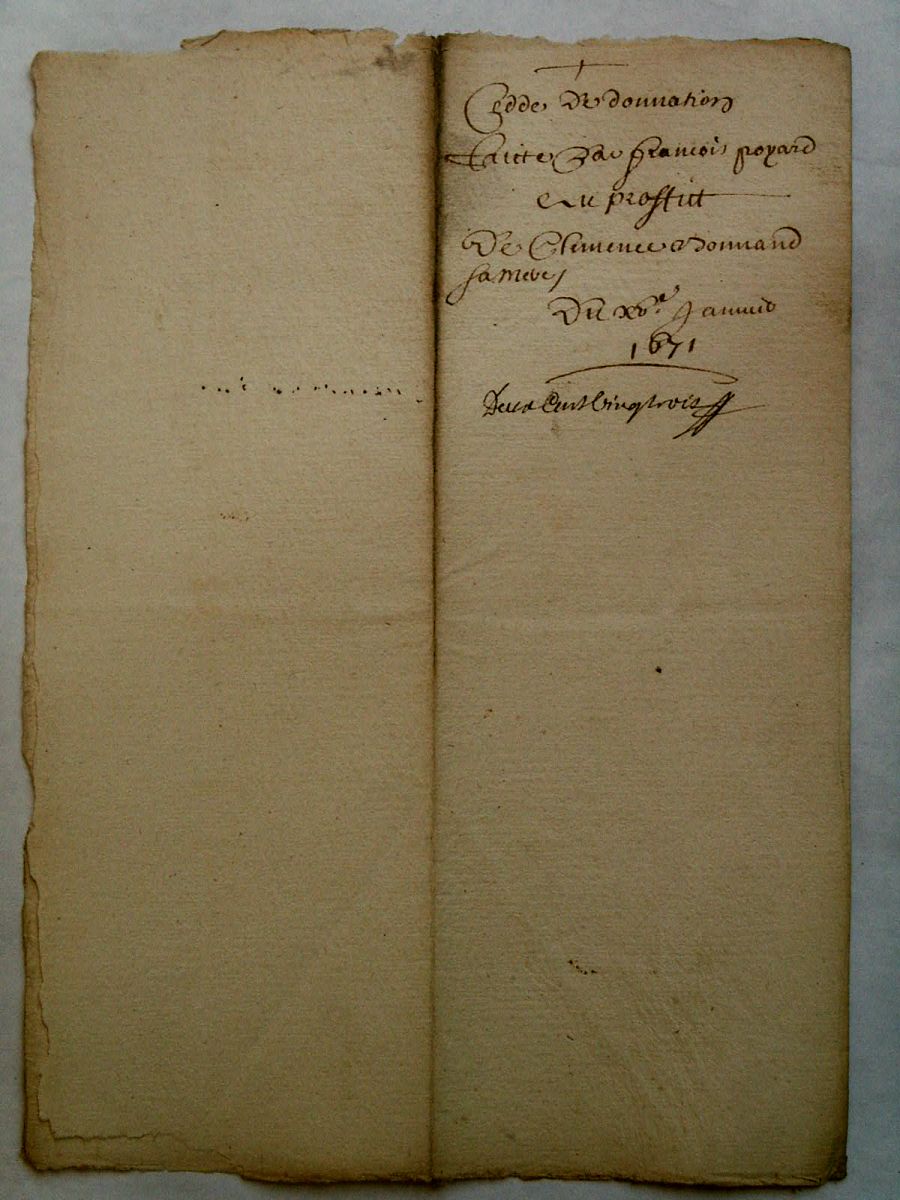 Cedde de donnation
faicte par francois poyard
au proffict
De Clemence Bonnand
sa mere
Du xbe Janvie
1671
Deux Cent Vingt trois